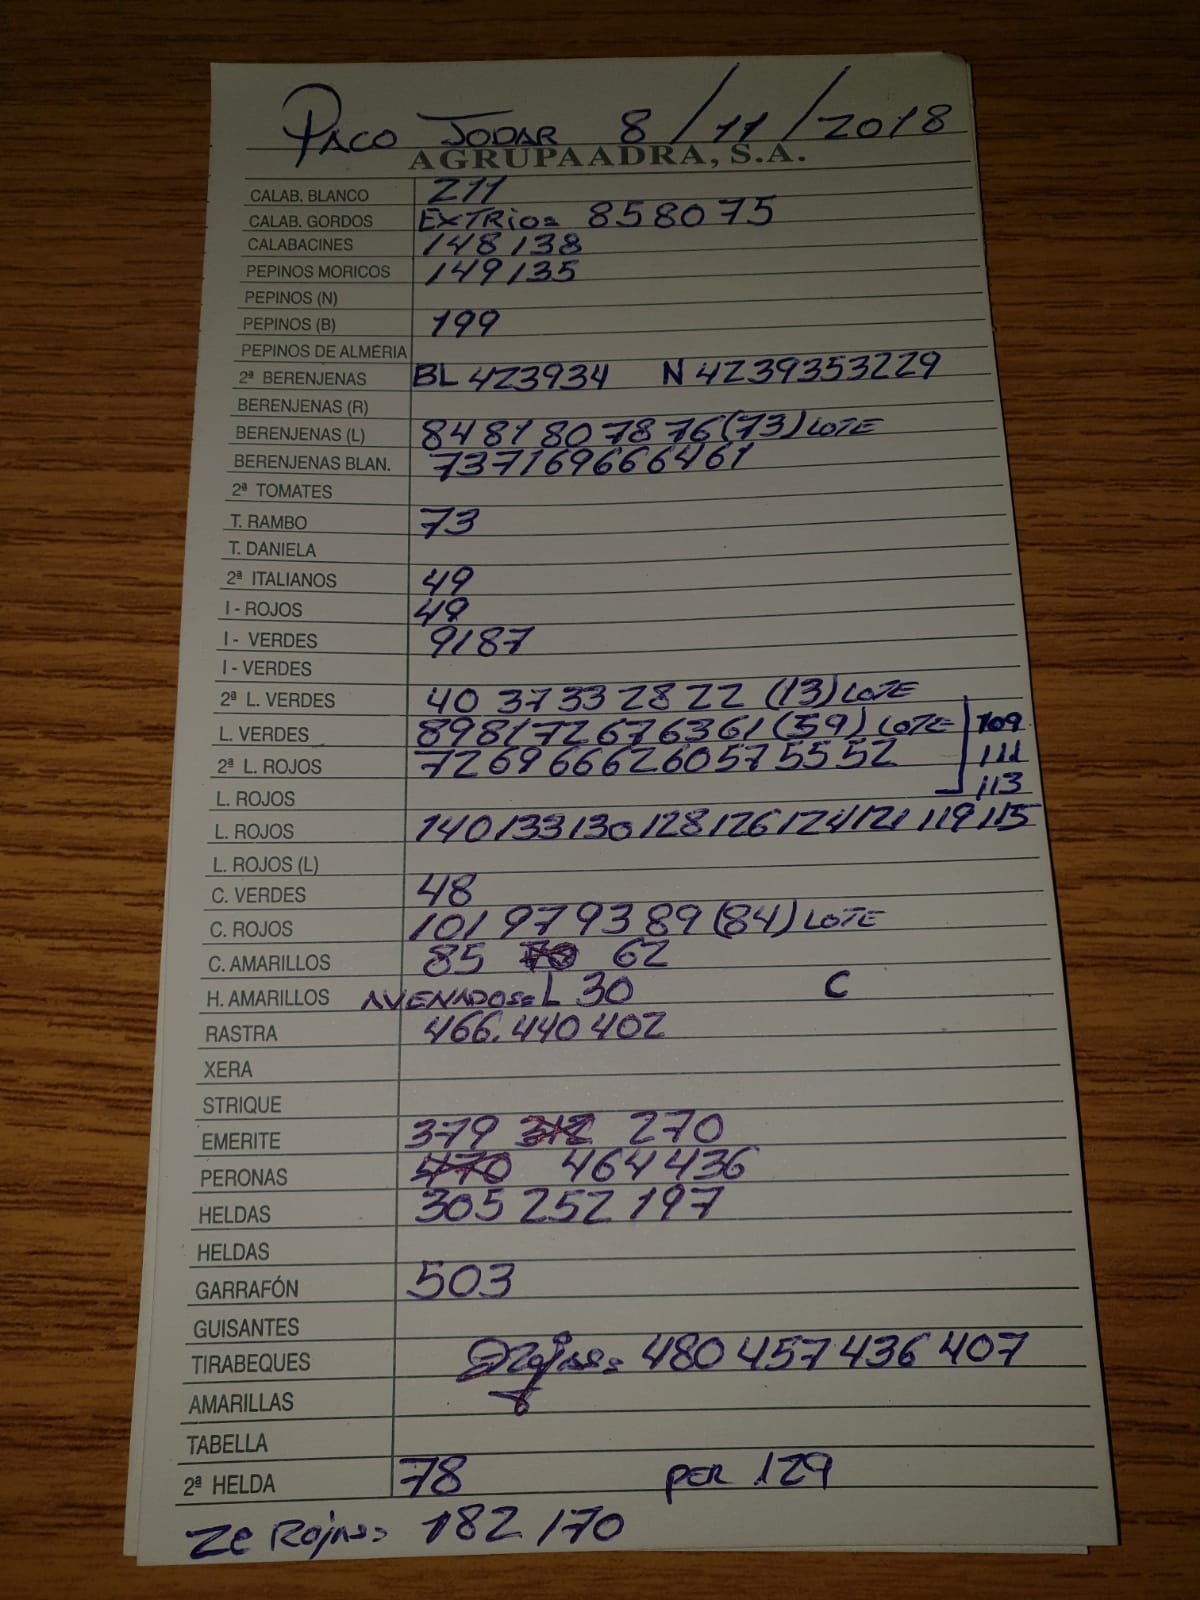 PACO JODAR 8/11/2018
AGRUPAADRA, S.A.
CALAB. BLANCO 211
CALAB. GORDOS EXTRio= 85 80 75
CALABACINES 148 138
PEPINOS MORICOS 149 135
PEPINOS (N)
PEPINOS (B) 199
PEPINOS DE ALMERIA
2ª BERENJENAS BL 42 39 34 N 42 39 35 32 29
BERENJENAS (R)
BERENJENAS (L) 84 81 80 78 76 (73) LOTE
BERENJENAS BLAN. 73 71 69 66 64 61
2ª TOMATES
T. RAMBO 73
T. DANIELA
2ª ITALIANOS 49
I - ROJOS 49
I - VERDES 91 87
I - VERDES
2ª L. VERDES 40 37 33 28 22 (13) LOTE
L. VERDES 89 81 72 67 63 61 (59) LOTE 109
2ª L. ROJOS 72 69 66 62 60 57 55 52 111
L. ROJOS 113
L. ROJOS 140 133 130 128 126 124 121 119 115
L. ROJOS (L)
C. VERDES 48
C. ROJOS 101 97 93 89 (84) LOTE
C. AMARILLOS 85 70 62
H. AMARILLOS AVENADOS= L 30 C
RASTRA 466. 440 402
XERA
STRIQUE
EMERITE 379 312 270
PERONAS 470 464 436
HELDAS 305 252 197
HELDAS
GARRAFÓN 503
GUISANTES
TIRABEQUES 480 457 436 407
AMARILLAS
TABELLA
2ª HELDA 78 PER 129
Rojas= 182 170